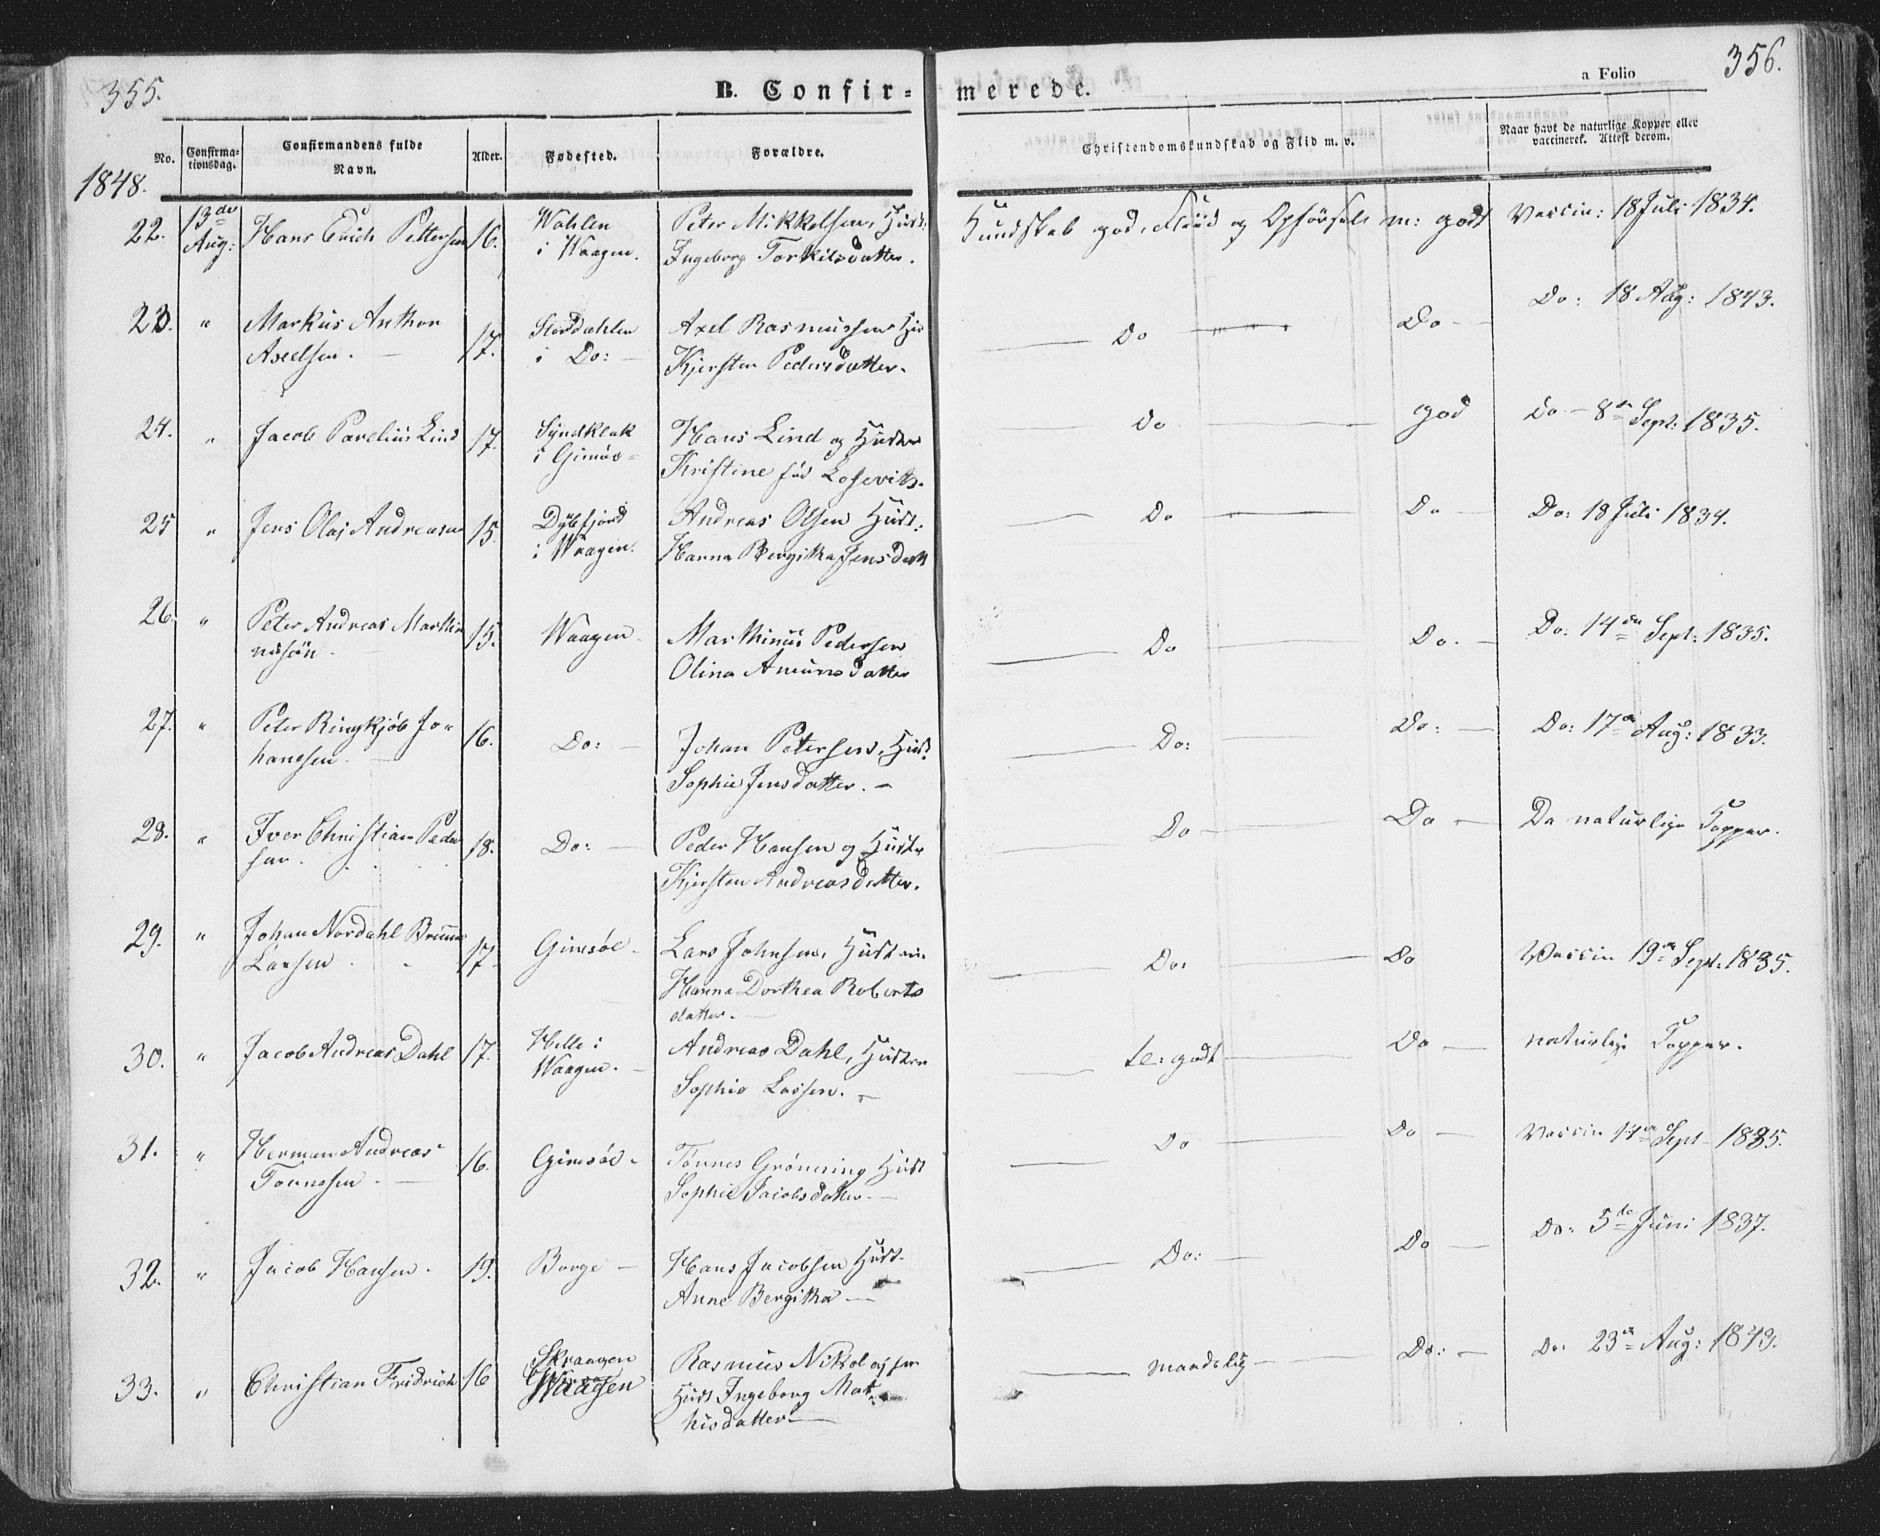 355.
B. Confir-
merede.
a Folio
356.
No.
Confirma-
tionsdag.
Confirmandens fulde
Navn.
Alder.
Fødested.
Forældre.
Christendomskundskab og Flid m. v.
Naar havt de naturlige Kopper eller
vaccineret. Attest derom.
1848.
22. 13de Aug: Hans Erich Pettersen 16. Wahlen i Waagen. Peter Mikkelsen, Hust: Ingeborg Torkilsdatter. Kundskab god, Fliid og Opførsel m: godt Vaccin: 18 Juli 1834.
23. " Markus Anthon Axelsen. 17. Storddahlen i Do: Axel Rasmussen Hu Kjersten Pedersdatter. Do Do Do: 18 Aug: 1843.
24. " Jacob Parelius Lind 17. Sÿndklak i Gimsø Hans Lind og Hustru Kristine fød Do god Do 8de Sept: 1835.
25 " Jens Olaj Andreasen 15. Dÿbfjord i Waagen. Andreas Olsen Hust: Hanna Bergitha Jensdatt Do Do Do: 18 Juli 1834.
26. " Peter Andreas Marthi nusøn 15. Waagen Marthinus Pedersen Olina Do Do. Do: 14de Sept: 1835.
27. " Peter Ringkjøb Jo- hansen 16. Do: Johan Petersen, Hust. Sophie Jensdatter. Do: Do: Do: 17de Aug: 1833.
28. " Iver Christian Peder sen 18. Do: Peder Hansen og Hustr Kjersten Andreasdatter. Do Do De naturlige Kopper.
29. " Johan Nordahl Bruun Larsen 17 Gimsøe Lars Johnsen, Hustruen Hanna Dorthea Roberts datter. Do: Do Vaccin 19de Sept: 1835.
30. " Jacob Andreas Dahl 17. Helle i Waagen. Andreas Dahl, Hustru Sophie Lassen. te: godt Do naturlige Kopper.
31. " Herman Andreas Tønnesen 16. Gimsøe Tønnes Grønning Hust Sophie Jacobsdatter. Do Do Vaccin 14de Sept 1835.
32. " Jacob Hansen. 19. Borge Hans Jacobsen Hust. Anne Bergitha Do: Do Do: 5te Juni 1837.
33. " Christian Fridrich 16 Skraagen Waagen Rasmus Nikolajsen Hust Ingeborg Mat- hisdatter maadelig Do: Do: 23de Aug: 1843.